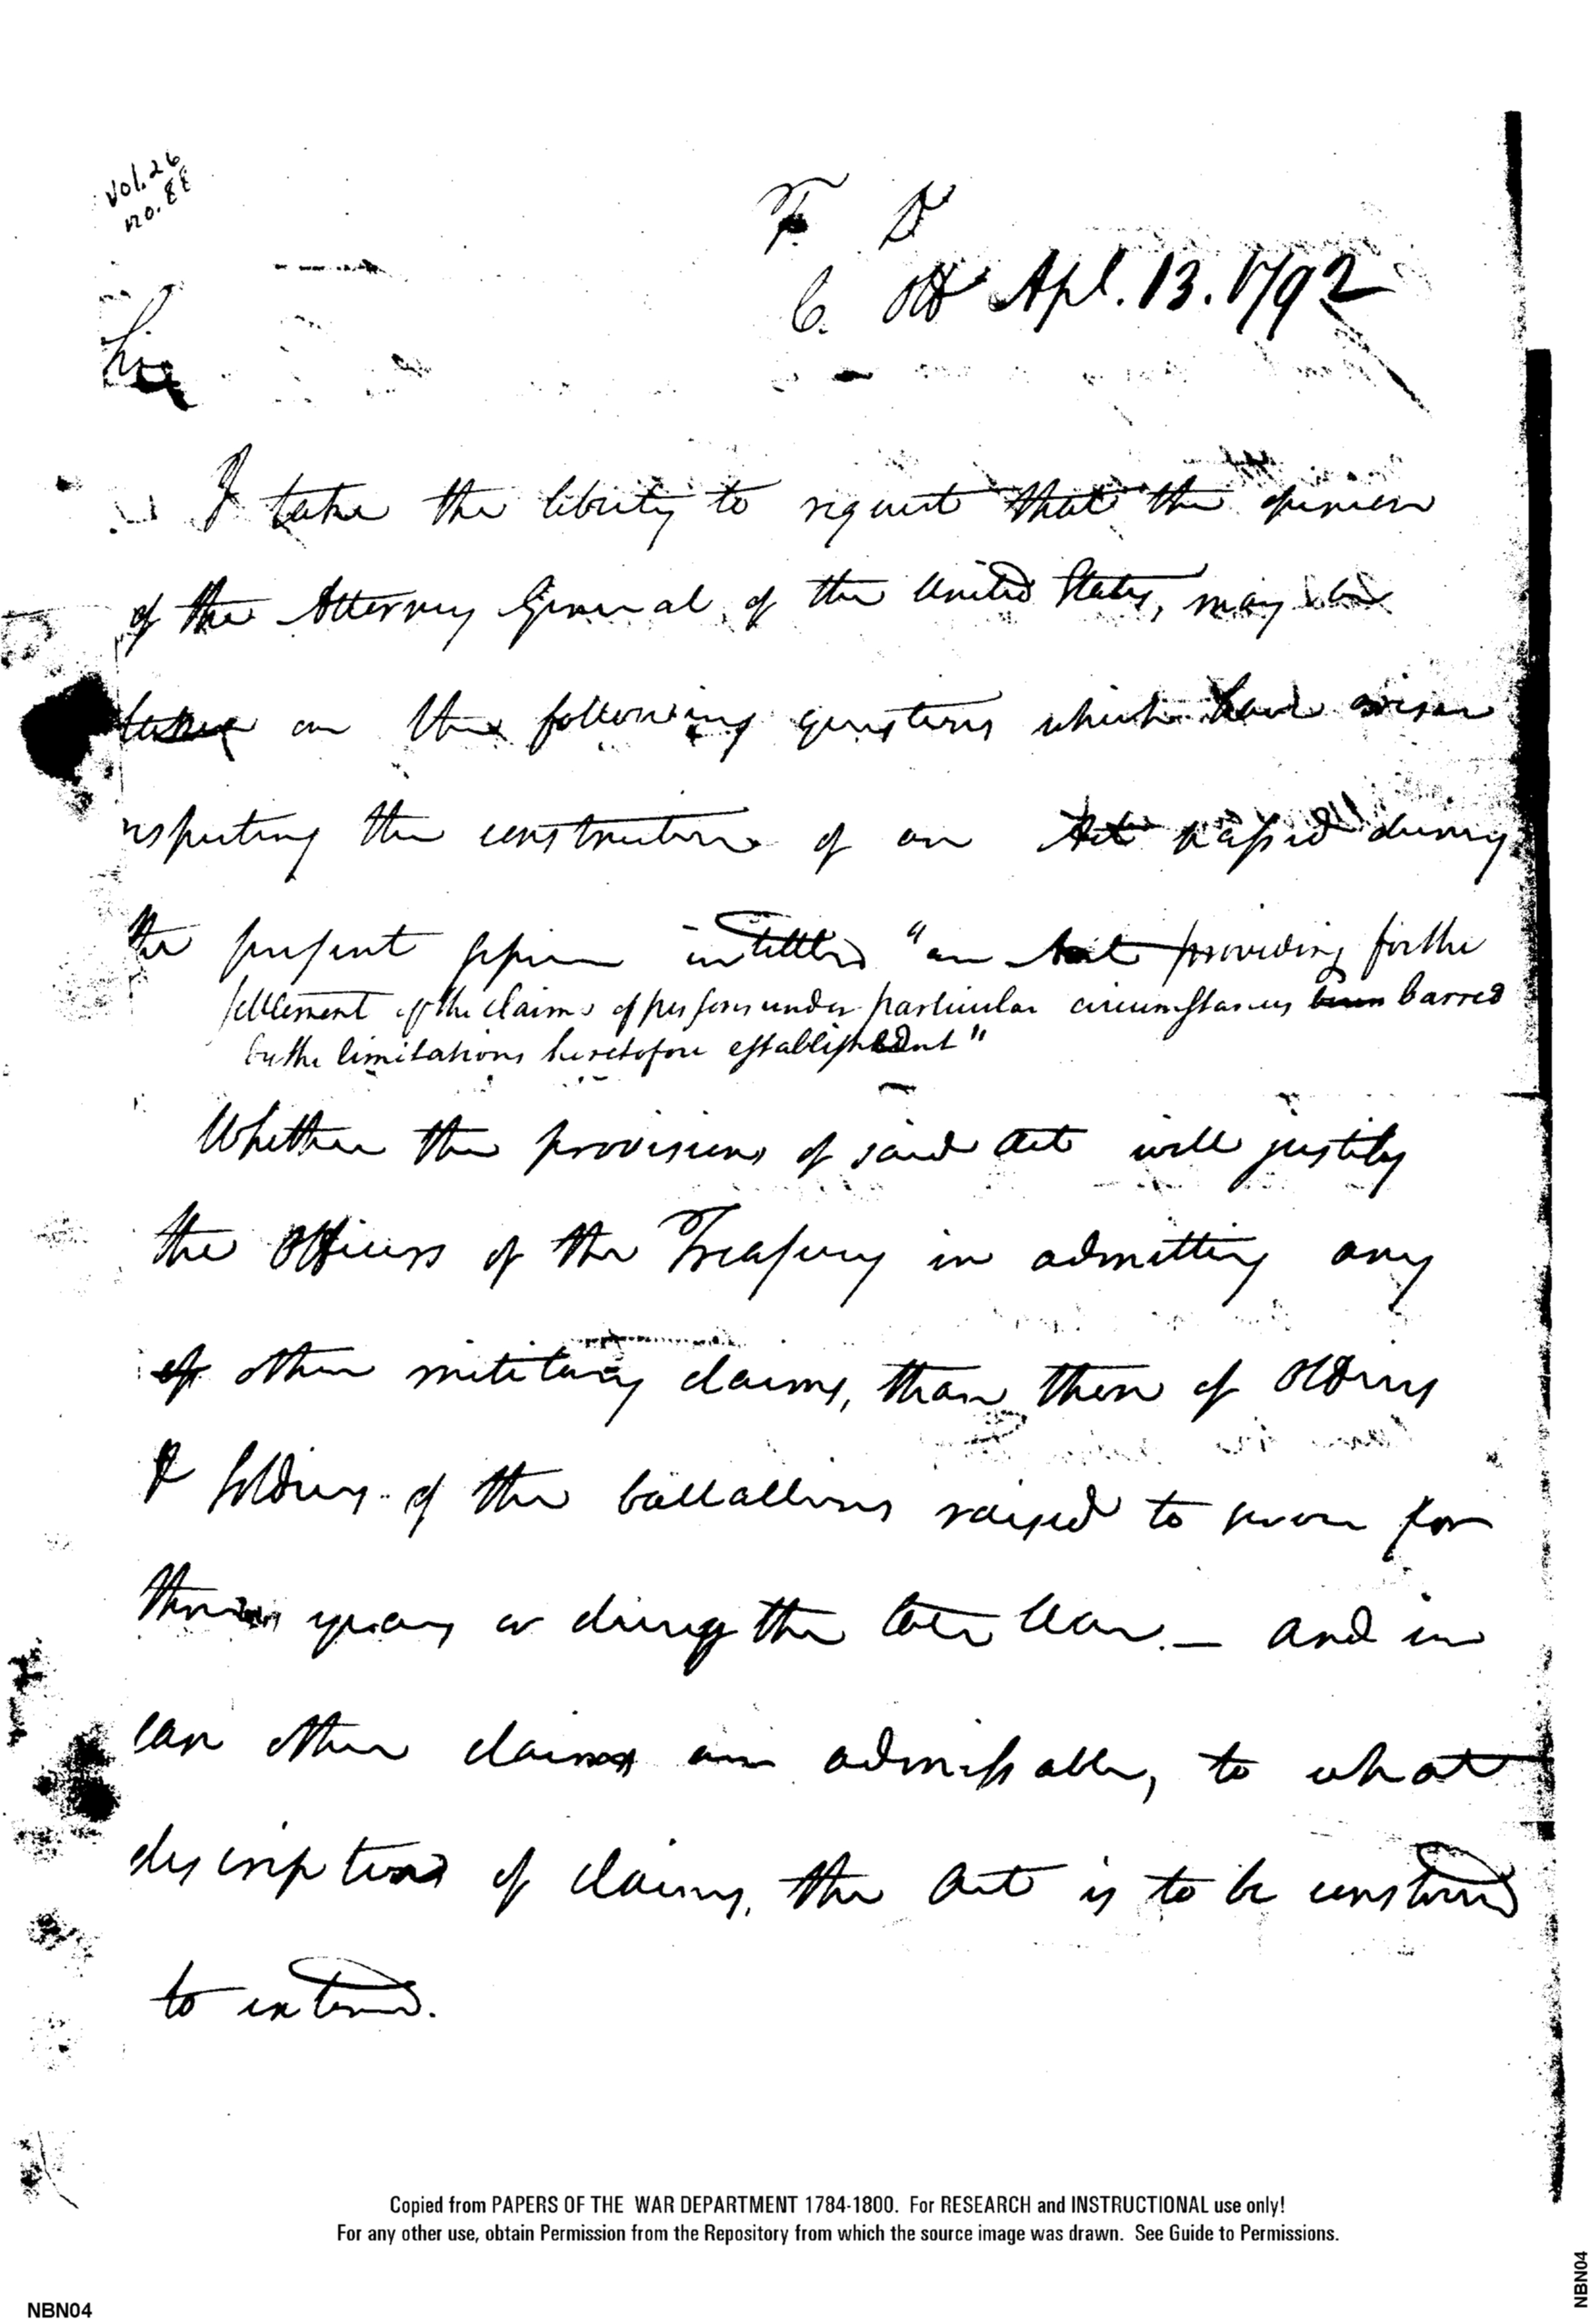 Vol. 26
no. 88
T D
C. Off Apl. 13. 1792
Sir
I take the liberty to request that the opinion
of the Attorney General of the United States, may be
taken on the following questions which have arisen
respecting the construction of an Act passed during
the present session intitled "an Act providing for the
settlement of the claims of persons under particular circumstances barred
by the limitations heretofore established"
Whether the provisions of said Act will justify
the Officers of the Treasury in admitting any
other military claims, than those of Officers
& Soldiers of the battallions raised to serve for
three years or during the late War. — and in
case other claims are admissable, to what
descriptions of claims, the Act is to be construed
to extend.
Copied from PAPERS OF THE WAR DEPARTMENT 1784-1800. For RESEARCH and INSTRUCTIONAL use only!
For any other use, obtain Permission from the Repository from which the source image was drawn. See Guide to Permissions.
NBN04
NBN04